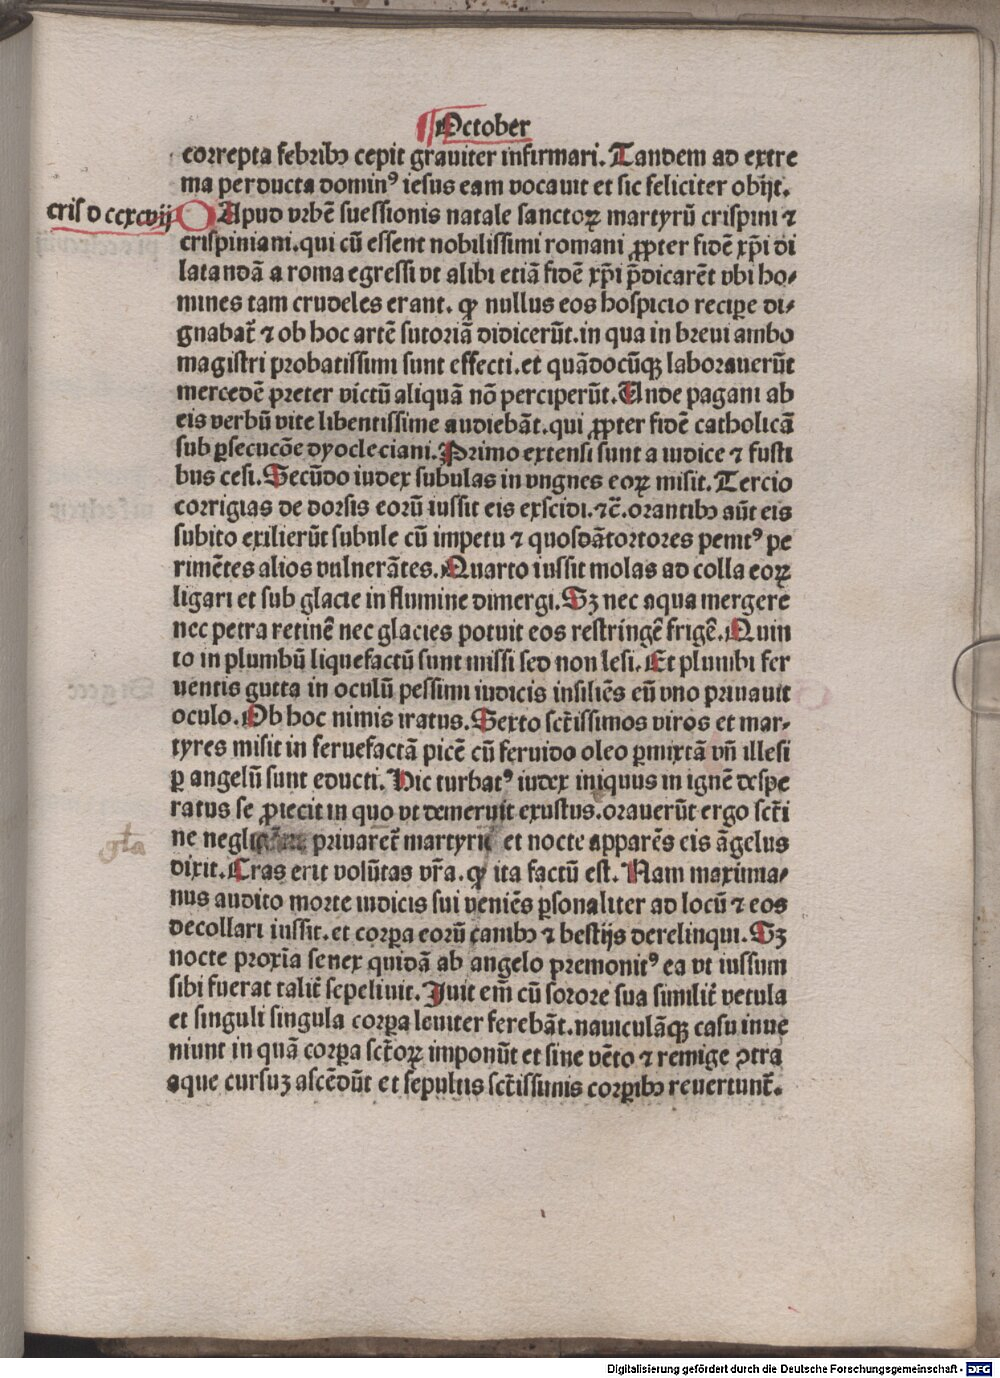 October
correpta febribꝯ cepit grauiter infirmari. Tandem ad extre
ma perducta dominꝰ iesus eam vocauit et sic feliciter obijt.
cris d ccxcvij
Apud vrbē suessionis natale sanctoꝝ martyrū crispini ⁊
crispiniani. qui cū essent nobilissimi romani ꝓpter fidē xp̄i di
latandā a roma egressi vt alibi etiā fidē xp̄i p̄dicarēt vbi ho⸗
mines tam crudeles erant. ꝙ nullus eos hospicio recipe di⸗
gnabat̄ ⁊ ob hoc artē sutoriā didicerūt. in qua in breui ambo
magistri probatissimi sunt effecti. et quādocūqꝫ laborauerūt
mercedē preter victū aliquā nō perciperūt. Unde pagani ab
eis verbū vite libentissime audiebāt. qui ꝓpter fidē catholicā
sub ꝑsecucōe dyocleciani. Primo extensi sunt a iudice ⁊ fusti
bus cesi. Secūdo iudex subulas in vngnes eoꝝ misit. Tercio
corrigias de dorsis eorū iussit eis exscidi. ⁊c̄. orantibꝯ aūt eis
subito exilierūt subule cū impetu ⁊ quosdā tortores penitꝰ pe
rimētes alios vulnerātes. Quarto iussit molas ad colla eoꝝ
ligari et sub glacie in flumine dimergi. Sꝫ nec aqua mergere
nec petra retinē nec glacies potuit eos restringē frigē. Quin
to in plumbū liquefactū sunt missi sed non lesi. Et plumbi fer
uentis gutta in oculū pessimi iudicis insiliēs eū vno priuauit
oculo. Ob hoc nimis iratus. Sexto sct̄issimos viros et mar⸗
tyres misit in feruefactā picē cū feruido oleo ꝑmixtā vn̄ illesi
ꝑ angelū sunt educti. Hic turbatꝰ iudex iniquus in ignē despe
ratus se ꝓiecit in quo vt demeruit exustus. orauerūt ergo sct̄i
ne priuaret̄ martyrij et nocte apparēs eis āgelus
gl̄a
dixit. Cras erit volūtas vr̄a. ꝙ ita factū est. Nam maximia⸗
nus audito morte iudicis sui veniēs ꝑsonaliter ad locū ⁊ eos
decollari iussit. et corꝑa eorū canibꝯ ⁊ bestijs derelinqui. Sꝫ
nocte proxīa senex quidā ab angelo premonitꝰ ea vt iussum
sibi fuerat talit̄ sepeliuit. Iuit em̄ cū sorore sua similit̄ vetula
et singuli singula corꝑa leuiter ferebāt. nauiculāqꝫ casu inue
niunt in quā corꝑa sct̄oꝝ imponūt et sine vēto ⁊ remige ꝯtra
aque cursuꝫ ascēdūt et sepultis sct̄issimis corꝑibꝯ reuertunt̄.
Digitalisierung gefördert durch die Deutsche Forschungsgemeinschaft - DFG